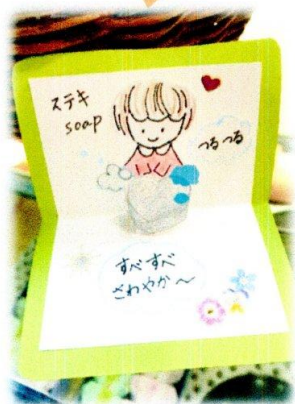 ステキ
soap
つるつる
すべすべ
さわやか〜